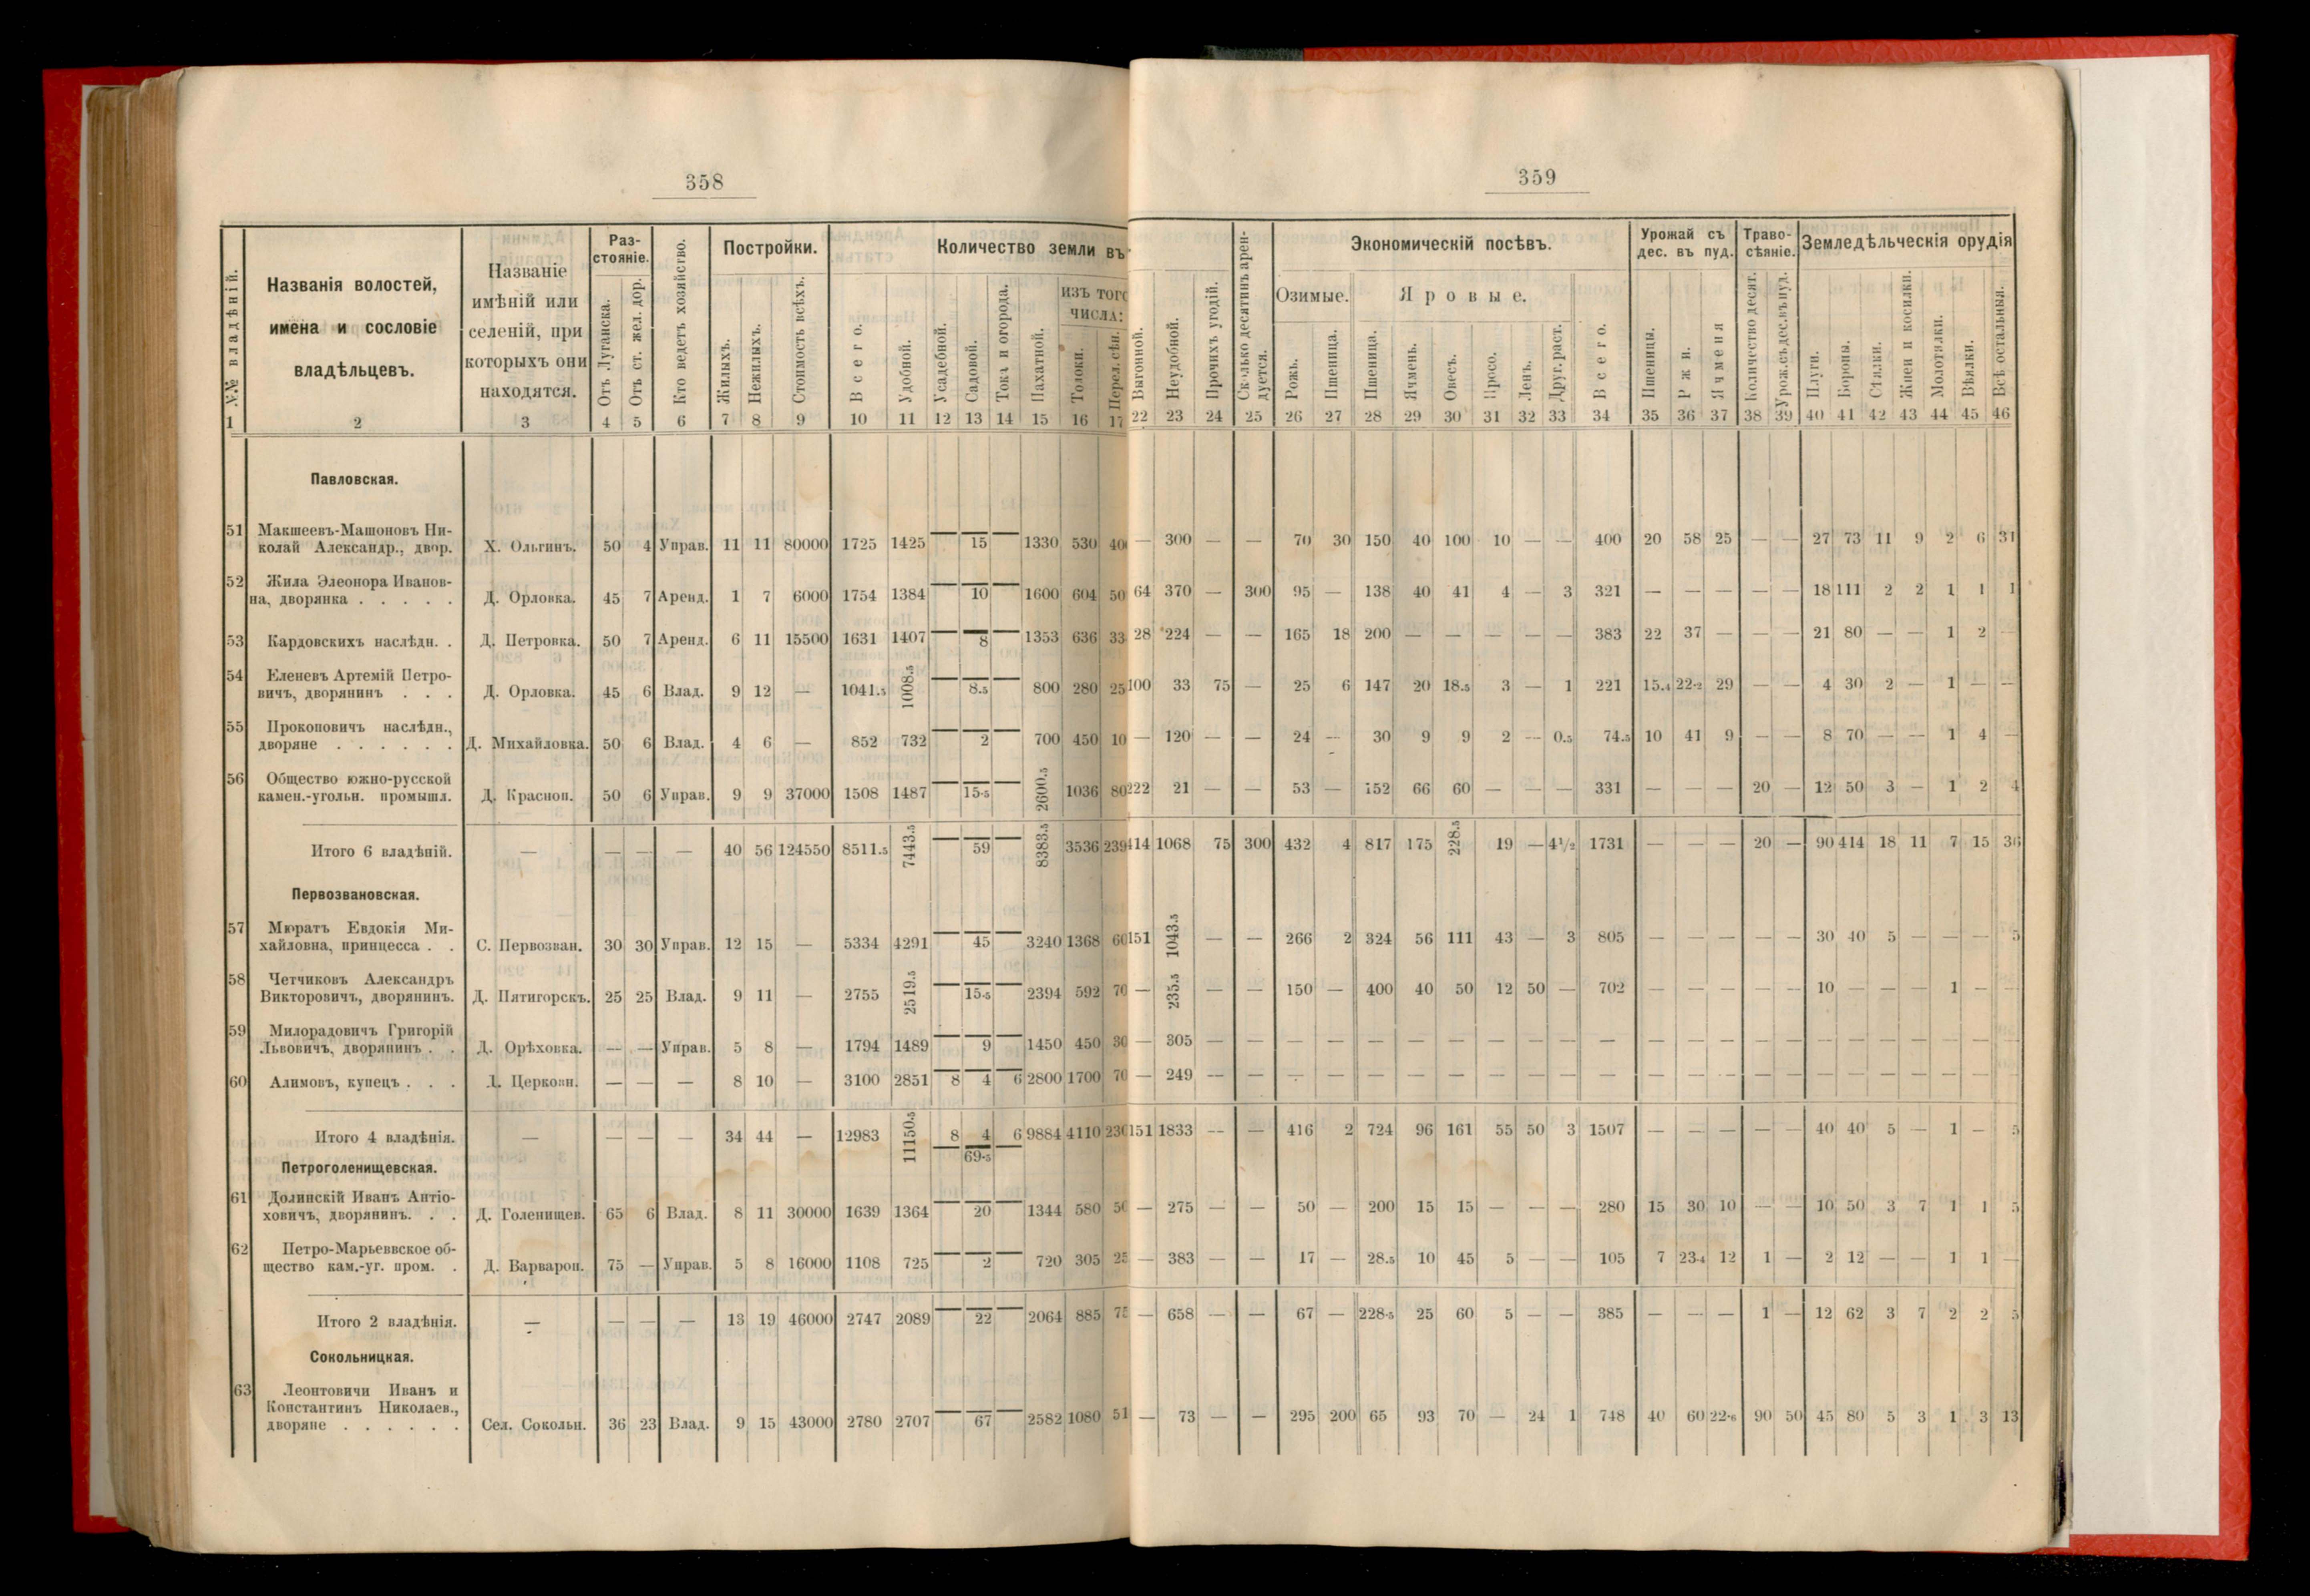 358
№№ владѣній.
Названія волостей,
имена и сословіе
владѣльцевъ.
Названіе
имѣній или
селеній, при
которыхъ они
находятся.
Раз-
стояніе.
Отъ Луганска.
Отъ ст. жел. дор.
Кто ведетъ хозяйство.
Постройки.
Жилыхъ.
Нежилыхъ.
Стоимость всѣхъ.
Количество земли въ
Всего.
Удобной.
Усадебной.
Садовой.
Тока и огорода.
Пахатной.
изъ того
числа:
Толоки.
Перел. сѣн.
1 2 3 4 5 6 7 8 9 10 11 12 13 14 15 16 17
Павловская.
51 Макшеевъ-Машоновъ Ни-
колай Александр., двор. Х. Ольгинъ. 50 4 Управ. 11 11 80000 1725 1425 — 15 — 1330 530 40
52 Жила Элеонора Иванов-
на, дворянка . . . . . Д. Орловка. 45 7 Аренд. 1 7 6000 1754 1384 — 10 — 1600 604 50
53 Кардовскихъ наслѣдн. . Д. Петровка. 50 7 Аренд. 6 11 15500 1631 1407 — 8 — 1353 636 33
54 Еленевъ Артемій Петро-
вичъ, дворянинъ . . . Д. Орловка. 45 6 Влад. 9 12 — 1041.5 1008.5 — 8.5 — 800 280 25
55 Прокоповичъ наслѣдн.,
дворяне . . . . . . Д. Михайловка. 50 6 Влад. 4 6 — 852 732 — 2 — 700 450 10
56 Общество южно-русской
камен.-угольн. промышл. Д. Красноп. 50 6 Управ. 9 9 37000 1508 1487 — 15.5 — 2600.5 1036 80
Итого 6 владѣній. — — — — 40 56 124550 8511.5 7443.5 — 59 — 8383.5 3536 239
Первозвановская.
57 Мюратъ Евдокія Ми-
хайловна, принцесса . . С. Первозван. 30 30 Управ. 12 15 — 5334 4291 — 45 — 3240 1368 60
58 Четчиковъ Александръ
Викторовичъ, дворянинъ. Д. Пятигорскъ. 25 25 Влад. 9 11 — 2755 2519.5 — 15.5 — 2394 592 70
59 Милорадовичъ Григорій
Львовичъ, дворянинъ . . Д. Орѣховка. — — Управ. 5 8 — 1794 1489 — 9 — 1450 450 30
60 Алимовъ, купецъ . . . Д. Церковн. — — — 8 10 — 3100 2851 8 4 6 2800 1700 70
Итого 4 владѣнія. — — — — 34 44 — 12983 11150.5 8 4 6 9884 4110 230
— 69.5 —
Петроголенищевская.
61 Долинскій Иванъ Антіо-
ховичъ, дворянинъ. . . Д. Голенищев. 65 6 Влад. 8 11 30000 1639 1364 — 20 — 1344 580 50
62 Петро-Марьеввское об-
щество кам.-уг. пром. . Д. Варвароп. 75 — Управ. 5 8 16000 1108 725 — 2 — 720 305 25
Итого 2 владѣнія. — — — — 13 19 46000 2747 2089 — 22 — 2064 885 75
Сокольницкая.
63 Леонтовичи Иванъ и
Константинъ Николаев.,
дворяне . . . . . . Сел. Сокольн. 36 23 Влад. 9 15 43000 2780 2707 — 67 — 2582 1080 51
359
Выгонной.
Неудобной.
Прочихъ угодій.
Сколько десятинъ арен-
дуется.
Экономическій посѣвъ.
Озимые.
Яровые.
Рожь.
Пшеница.
Пшеница.
Ячмень.
Овесъ.
Просо.
Ленъ.
Друг. раст.
Всего.
Урожай съ
дес. въ пуд.
Пшеницы.
Ржи.
Ячменя
Траво-
сѣяніе.
Количество десят.
Урож. съ дес. въ пуд.
Земледѣльческія орудія
Плуги.
Бороны.
Сѣялки.
Жнеи и косилки.
Молотилки.
Вѣялки.
Всѣ остальныя.
22 23 24 25 26 27 28 29 30 31 32 33 34 35 36 37 38 39 40 41 42 43 44 45 46
— 300 — — 70 30 150 40 100 10 — — 400 20 58 25 — — 27 73 11 9 2 6 31
64 370 — 300 95 — 138 40 41 4 — 3 321 — — — — — 18 111 2 2 1 1 1
28 224 — — 165 18 200 — — — — — 383 22 37 — — — 21 80 — — 1 2 —
100 33 75 — 25 6 147 20 18.5 3 — 1 221 15.4 22.2 29 — — 4 30 2 — 1 — —
— 120 — — 24 — 30 9 9 2 — 0.5 74.5 10 41 9 — — 8 70 — — 1 4 —
222 21 — — 53 — 152 66 60 — — — 331 — — — 20 — 12 50 3 — 1 2 4
414 1068 75 300 432 4 817 175 228.5 19 — 4½ 1731 — — — 20 — 90 414 18 11 7 15 36
151 1043.5 — — 266 2 324 56 111 43 — 3 805 — — — — — 30 40 5 — — — 5
— 235.5 — — 150 — 400 40 50 12 50 — 702 — — — — — 10 — — — 1 — —
— 305 — — — — — — — — — — — — — — — — — — — — — — —
— 249 — — — — — — — — — — — — — — — — — — — — — — —
151 1833 — — 416 2 724 96 161 55 50 3 1507 — — — — — 40 40 5 — 1 — 5
— 275 — — 50 — 200 15 15 — — — 280 15 30 10 — — 10 50 3 7 1 1 5
— 383 — — 17 — 28.5 10 45 5 — — 105 7 23.4 12 1 — 2 12 — — 1 1 —
— 658 — — 67 — 228.5 25 60 5 — — 385 — — — 1 — 12 62 3 7 2 2 5
— 73 — — 295 200 65 93 70 — 24 1 748 40 60 22.6 90 50 45 80 5 3 1 3 13